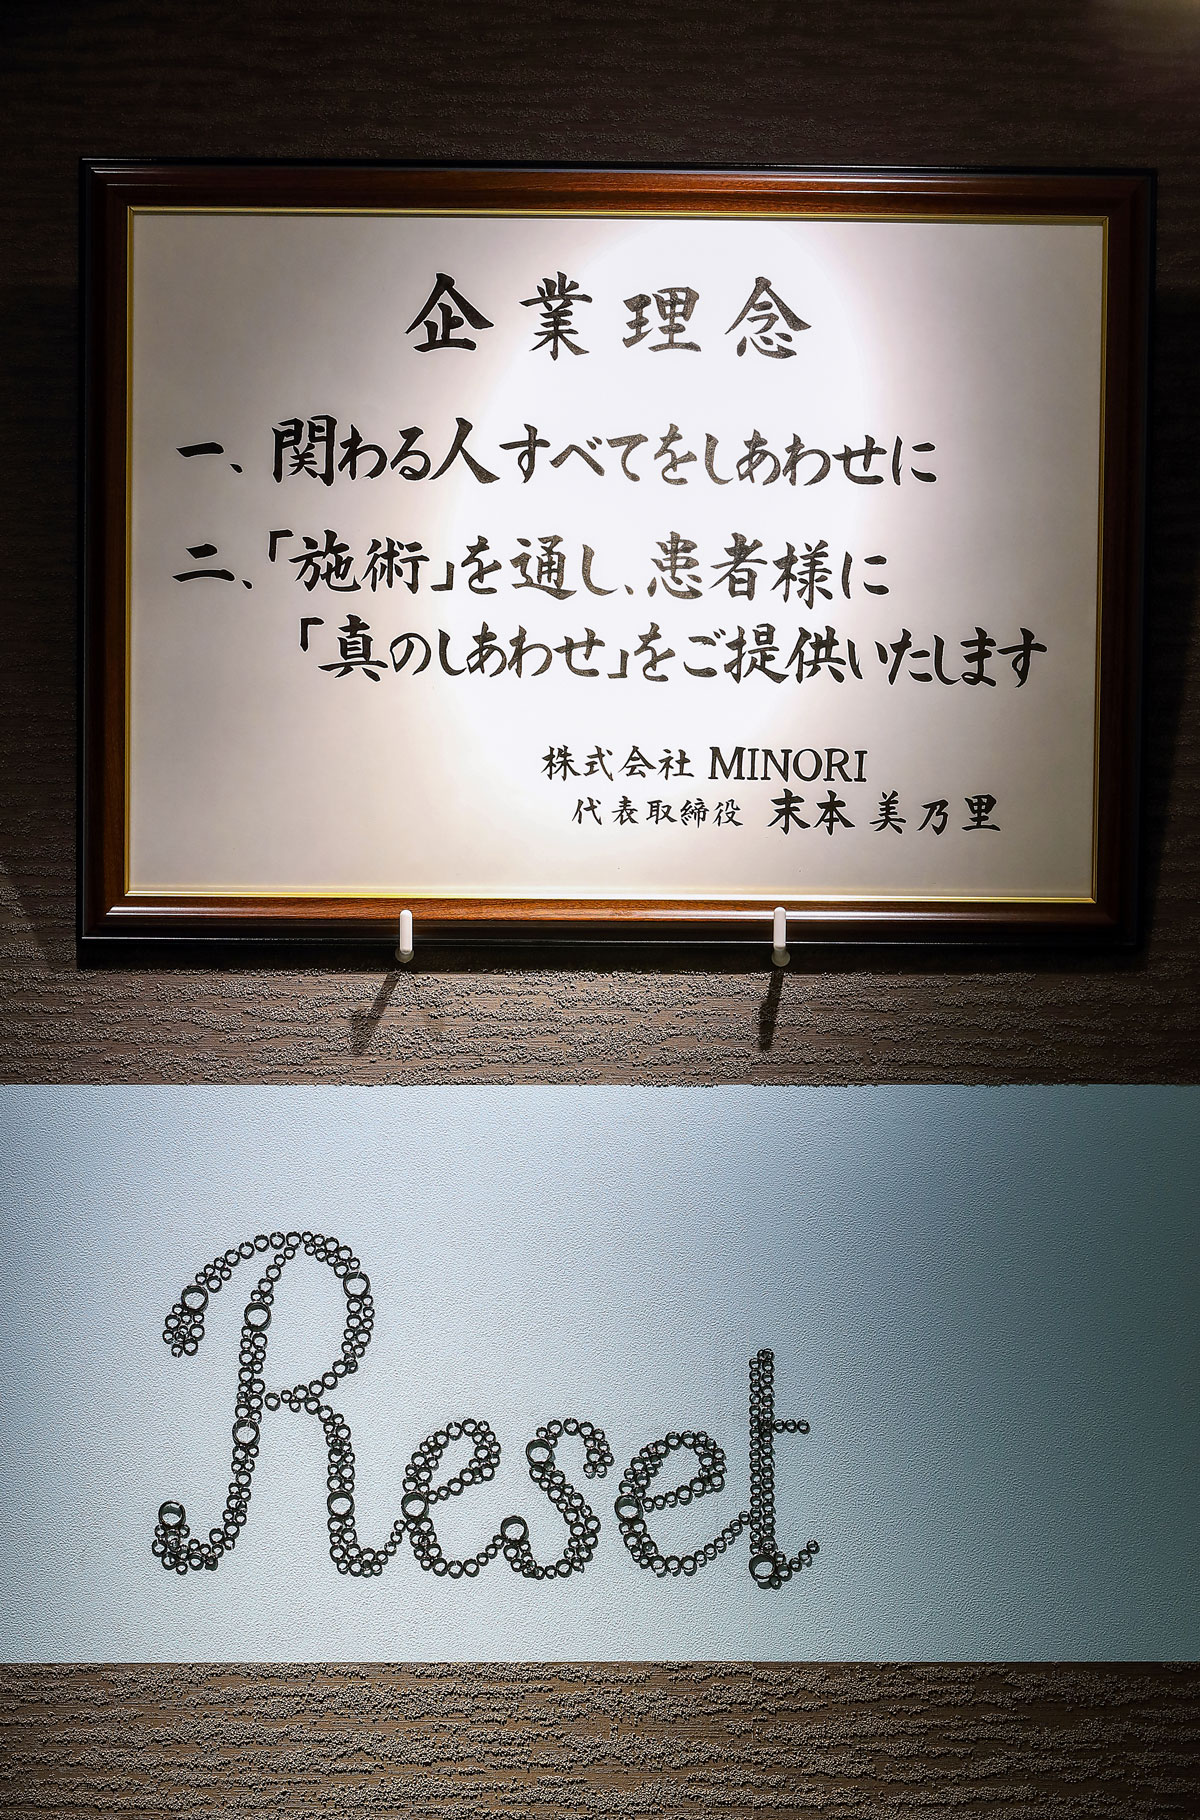 企業理念
一、関わる人すべてをしあわせに
二、「施術」を通し、患者様に
「真のしあわせ」をご提供いたします
株式会社 MINORI
代表取締役 末本 美乃里
Reset